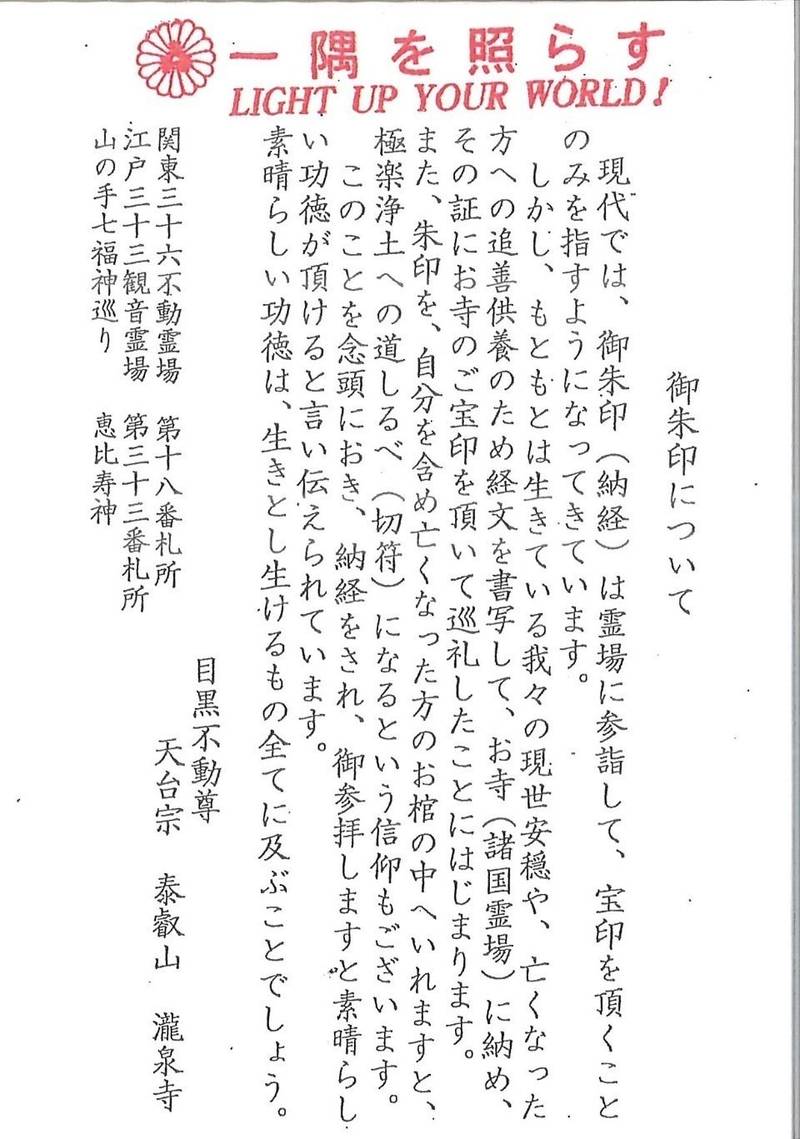 一隅を照らす
LIGHT UP YOUR WORLD!
御朱印について
現代では、御朱印（納経）は霊場に参詣して、宝印を頂くこと
のみを指すようになってきています。
しかし、もともとは生きている我々の現世安穏や、亡くなった
方への追善供養のため経文を書写して、お寺（諸国霊場）に納め、
その証にお寺のご宝印を頂いて巡礼したことにはじまります。
また、朱印を、自分を含め亡くなった方のお棺の中へいれますと、
極楽浄土への道しるべ（切符）になるという信仰もございます。
このことを念頭におき、納経をされ、御参拝しますと素晴らし
い功徳が頂けると言い伝えられています。
素晴らしい功徳は、生きとし生けるもの全てに及ぶことでしょう。
目黒不動尊
天台宗　泰叡山　瀧泉寺
関東三十六不動霊場　第十八番札所
江戸三十三観音霊場　第三十三番札所
山の手七福神巡り　恵比寿神